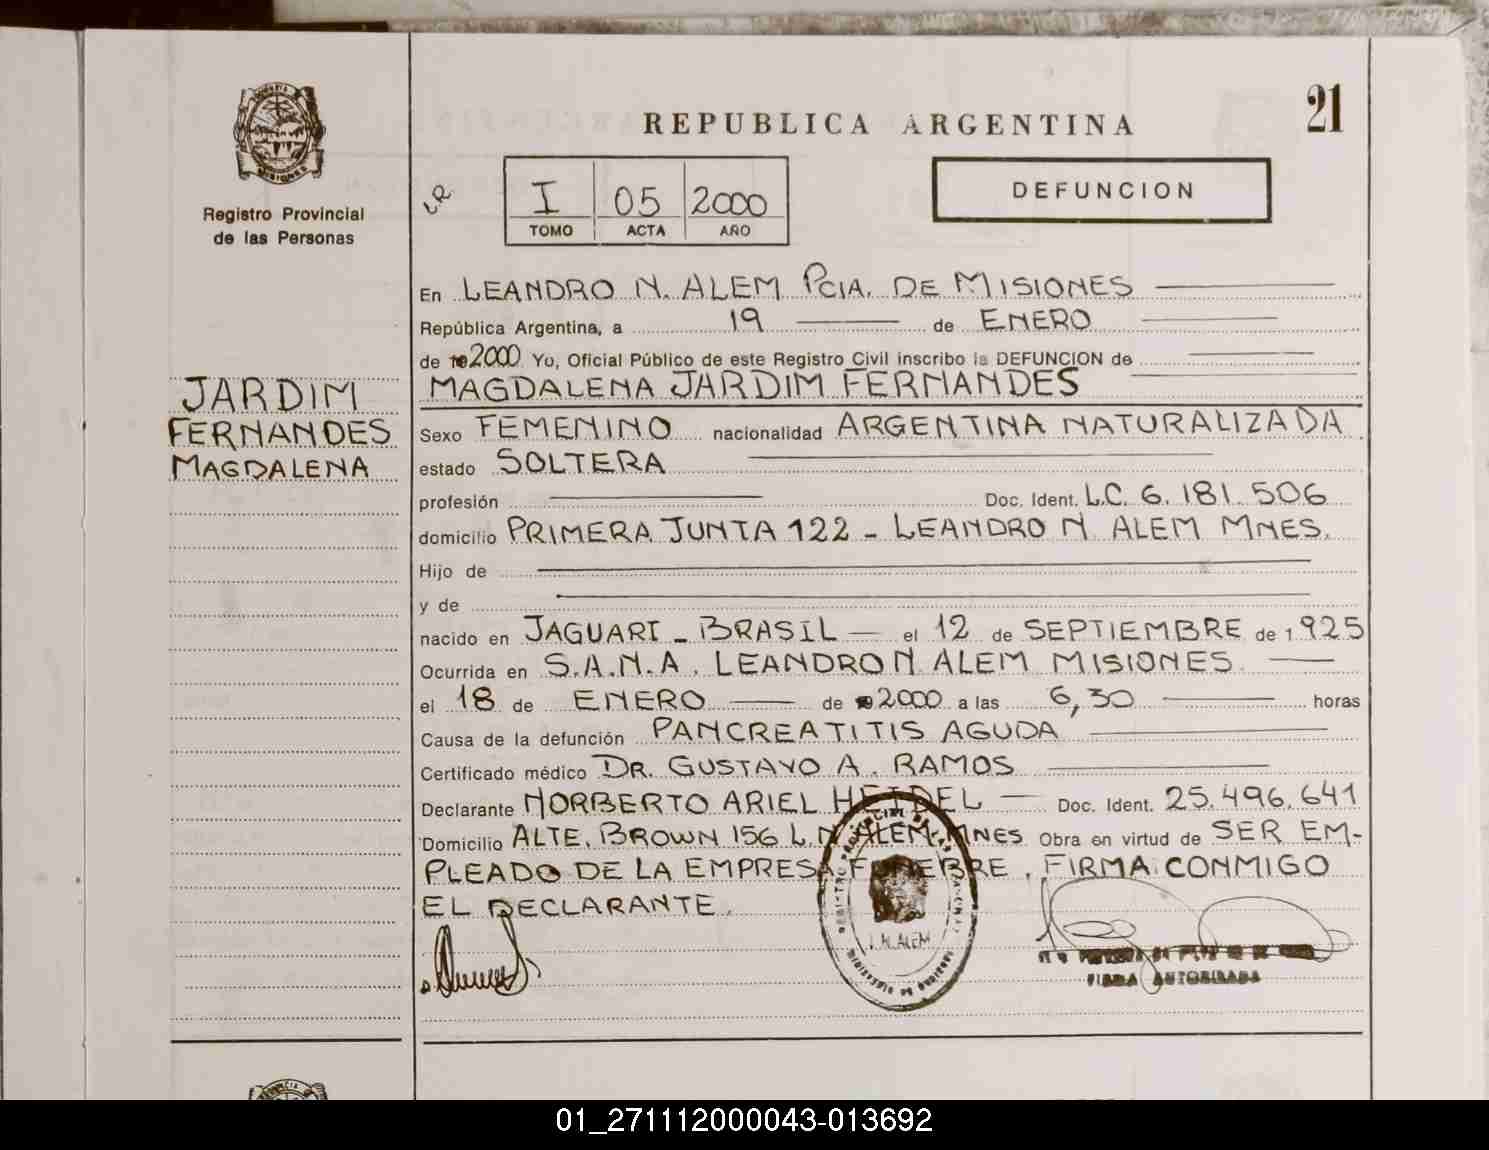 21
REPUBLICA ARGENTINA
MISIONES
Registro Provincial
de las Personas
I 05 2000
TOMO ACTA AÑO
DEFUNCION
JARDIM
FERNANDES
MAGDALENA
En LEANDRO N. ALEM PCIA. DE MISIONES
República Argentina, a 19 de ENERO
de 2000 Yo, Oficial Público de este Registro Civil inscribo la DEFUNCION de
MAGDALENA JARDIM FERNANDES
Sexo FEMENINO nacionalidad ARGENTINA NATURALIZADA
estado SOLTERA
profesión Doc. Ident. L.C. 6.181.506
domicilio PRIMERA JUNTA 122 - LEANDRO N. ALEM MNES.
Hijo de
y de
nacido en JAGUARI - BRASIL el 12 de SEPTIEMBRE de 1925
Ocurrida en S.A.N.A. LEANDRO N. ALEM MISIONES
el 18 de ENERO de 2000 a las 6,30 horas
Causa de la defunción PANCREATITIS AGUDA
Certificado médico DR. GUSTAVO A. RAMOS
Declarante NORBERTO ARIEL HEIDEL Doc. Ident. 25.496.641
Domicilio ALTE. BROWN 156 L.N. ALEM-MNES Obra en virtud de SER EM-
PLEADO DE LA EMPRESA FUNEBRE. FIRMA CONMIGO
EL DECLARANTE.
L.N. ALEM
FIRMA AUTORIZADA
01_271112000043-013692